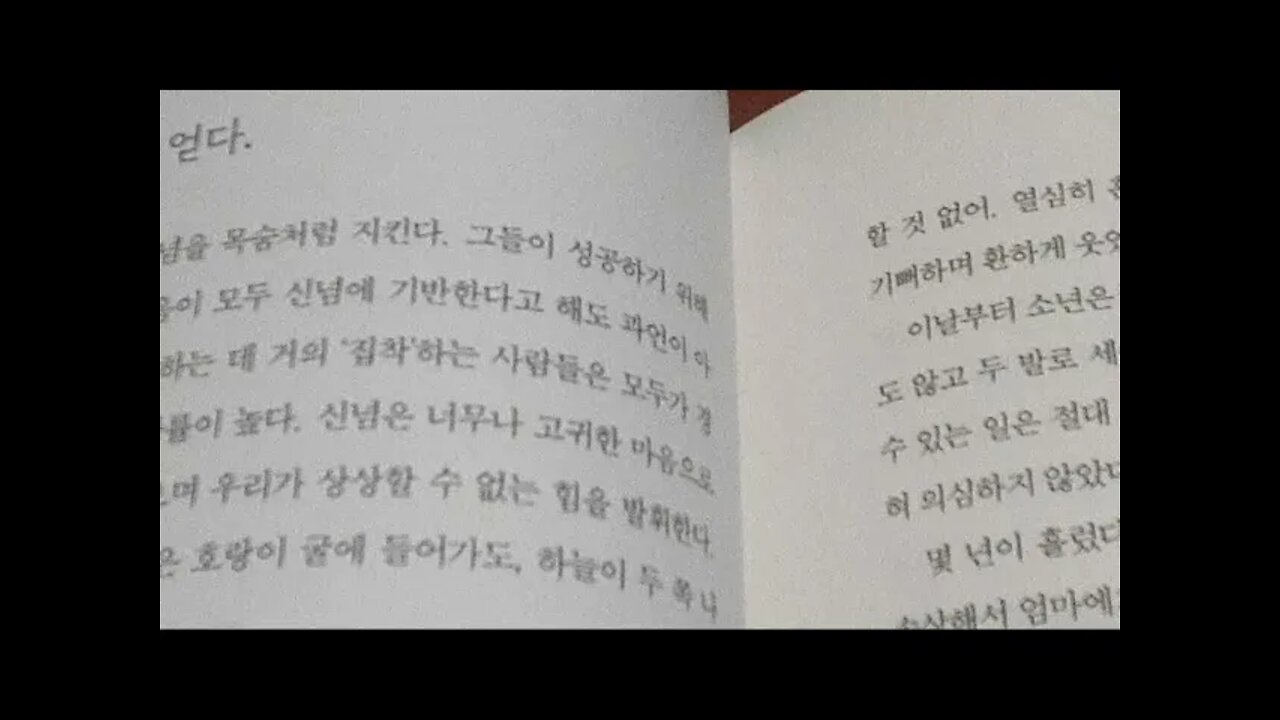 얻다.
념을 목숨처럼 지킨다. 그들이 성공하기 위해
이 모두 신념에 기반한다고 해도 과언이 아
하는 데 거의 '집착'하는 사람들은 모두가 정
률이 높다. 신념은 너무나 고귀한 마음으로
며 우리가 상상할 수 없는 힘을 발휘한다.
은 호랑이 굴에 들어가도, 하늘이 두 쪽 나
할 것 없어. 열심히
기뻐하며 환하게 웃었
이날부터 소년은
도 않고 두 발로 세
수 있는 일은 절대
히 의심하지 않았다
몇 년이 흘렀다
수상해서 엄마에